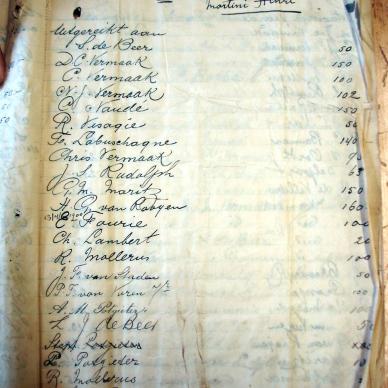 Martini Henri
Uitgereikt aan
S. de Beer 50
D.C. Vermaak 150
C. Vermaak 100
C.J. Vermaak 102
C. Naude 150
R. Visagie 50
Fr. Labuschagne 140
Chris Vermaak 70
J. S. Rudolph 63
G.M. Maritz 150
H. G. van Rooyen 160
C. Fourie 100
Ch. Lambert 20
R. Mollerus 100
J. F. van Staden
P. F. van Vuren
A. M. Potgieter
Z. de Beer
Potgieter
R. Mollerus